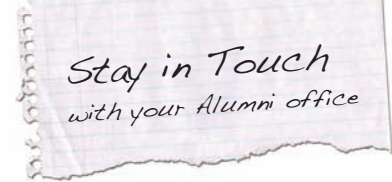 Stay in Touch
with your Alumni office